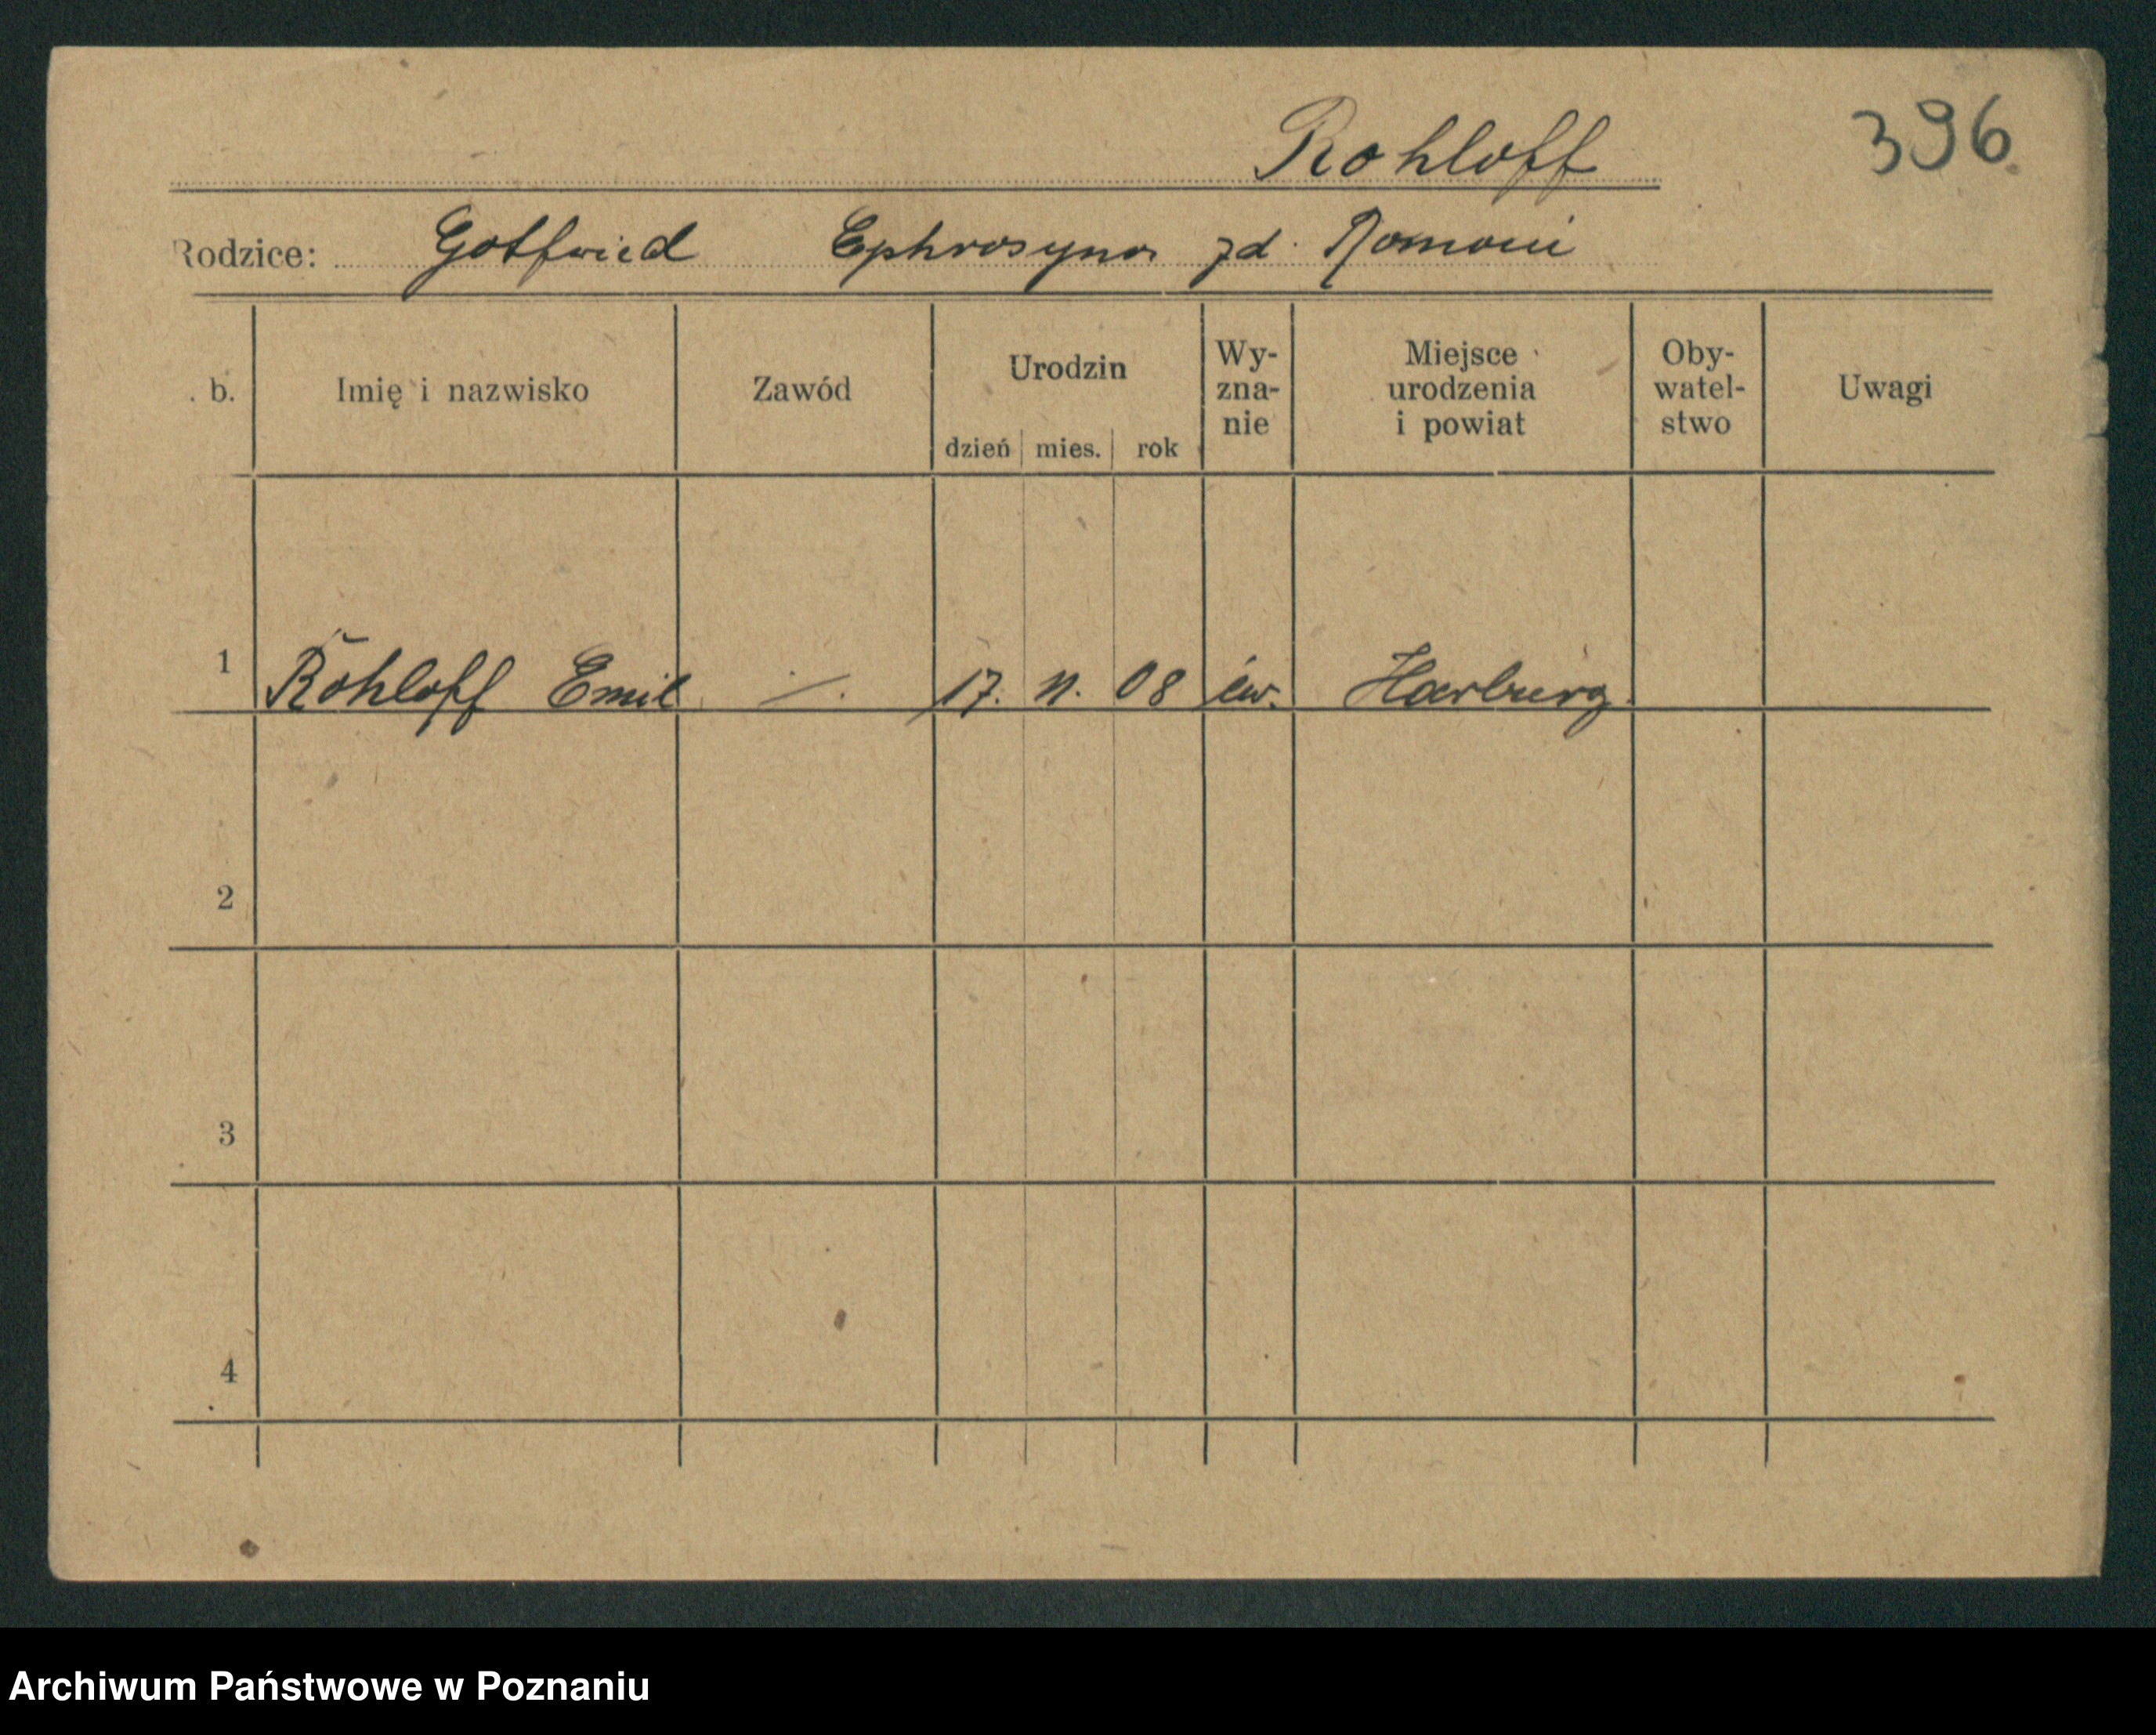 Rohloff
396
Rodzice: Gotfried Ephrosyna zd.
. b. Imię i nazwisko Zawód Urodzin dzień mies. rok Wy-zna-nie Miejsce urodzenia i powiat Oby-watel-stwo Uwagi
1 Rohloff Emil 17. 11. 08 ew. Harburg
2
3
4
Archiwum Państwowe w Poznaniu